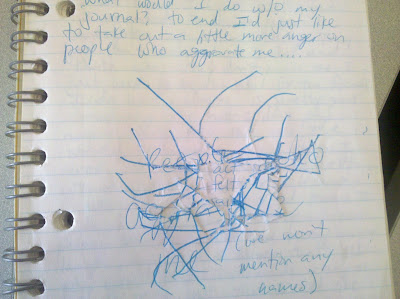 what would I do w/o my
journal? to end I'd just like
to take out a little more anger on
people who aggravate me....
People who
act
I felt
me
(we won't
mention any
names)